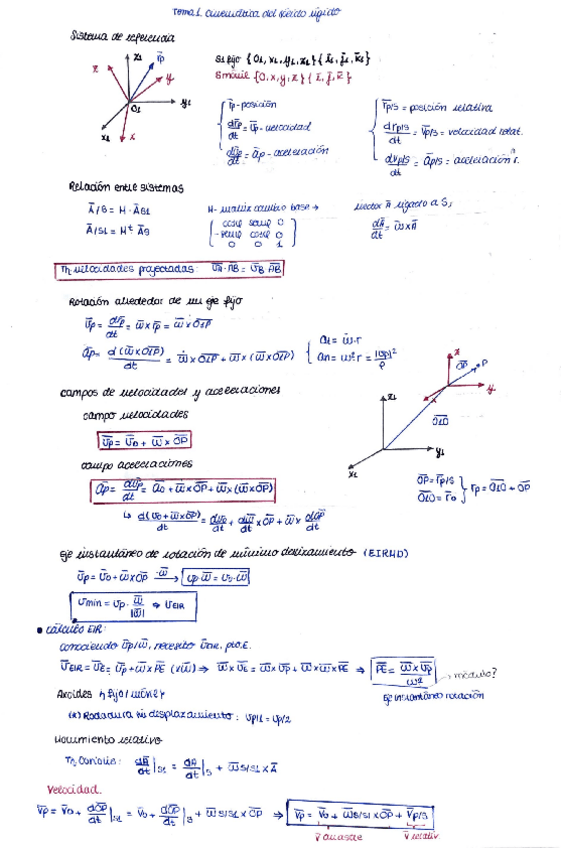 Tema 1. Cinemática del sólido rígido
Sistema de referencia
S1 fijo {O1, x1, y1, z1} { ī1, j̄1, k̄1}
S móvil {O, x, y, z} { ī, j̄, k̄}
z1 r̄p z y O1 y1 x1 x
r̄p - posición
dr̄p/dt = v̄p - velocidad
dv̄p/dt = āp - aceleración
r̄p/s = posición relativa
dr̄p/s/dt = v̄p/s = velocidad relat.
dv̄p/s/dt = āp/s = aceleración r.
Relación entre sistemas
Ā/S = M · ĀS1
Ā/S1 = Mᵗ ĀS
M - matriz cambio base →
cosφ senφ 0
-senφ cosφ 0
0 0 1
vector Ā ligado a S,
dĀ/dt = ω̄ x Ā
Th velocidades proyectadas: v̄A · ĀB = v̄B ĀB
Rotación alrededor de un eje fijo
v̄p = dr̄p/dt = ω̄ x r̄p = ω̄ x O1P
āp = d(ω̄ x O1P)/dt = ω̄ x O1P + ω̄ x (ω̄ x O1P)
an = ω²·r = |vp|²/ρ
Campos de velocidades y aceleraciones
campo velocidades
v̄p = v̄o + ω̄ x OP
campo aceleraciones
āp = dv̄p/dt = āo + ω̄ x OP + ω̄ x (ω̄ x OP)
↳ d(v̄o + ω̄ x OP)/dt = dv̄o/dt + dω̄/dt x OP + ω̄ x dOP/dt
z1 O1O y1 x1 z OP P y x
OP = r̄p/s
O1O = r̄o
r̄p = O1O + OP
Eje instantáneo de rotación de mínimo deslizamiento (EIRMD)
v̄p = v̄o + ω̄ x OP ·ω̄ → v̄p·ω̄ = v̄o·ω̄
v̄min = vp · ω̄/|ω̄| ⇒ vEIR
• Cálculo EIR:
conociendo v̄p/ω̄, necesito vEIR, pto.E.
v̄EIR = v̄E = v̄p + ω̄ x PE (xω̄) ⇒ ω̄ x v̄E = ω̄ x v̄p + ω̄ x ω̄ x PE ⇒ PE = ω̄ x v̄p/ω² → módulo?
eje instantáneo rotación
Axoides { fijo / móvil }
(*) Rodadura sin desplazamiento: vp/1 = vp/2
Movimiento relativo
Th Coriolis: dĀ/dt|S1 = dĀ/dt|S + ω̄S/S1 x Ā
Velocidad.
v̄p = v̄o + dOP/dt|S1 = v̄o + dOP/dt|S + ω̄S/S1 x OP ⇒ v̄p = v̄o + ω̄S/S1 x OP + v̄p/s
v̄ arrastre v̄ relativ.